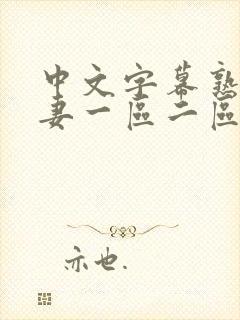 中文字幕熟
妻一區二區
亦也.